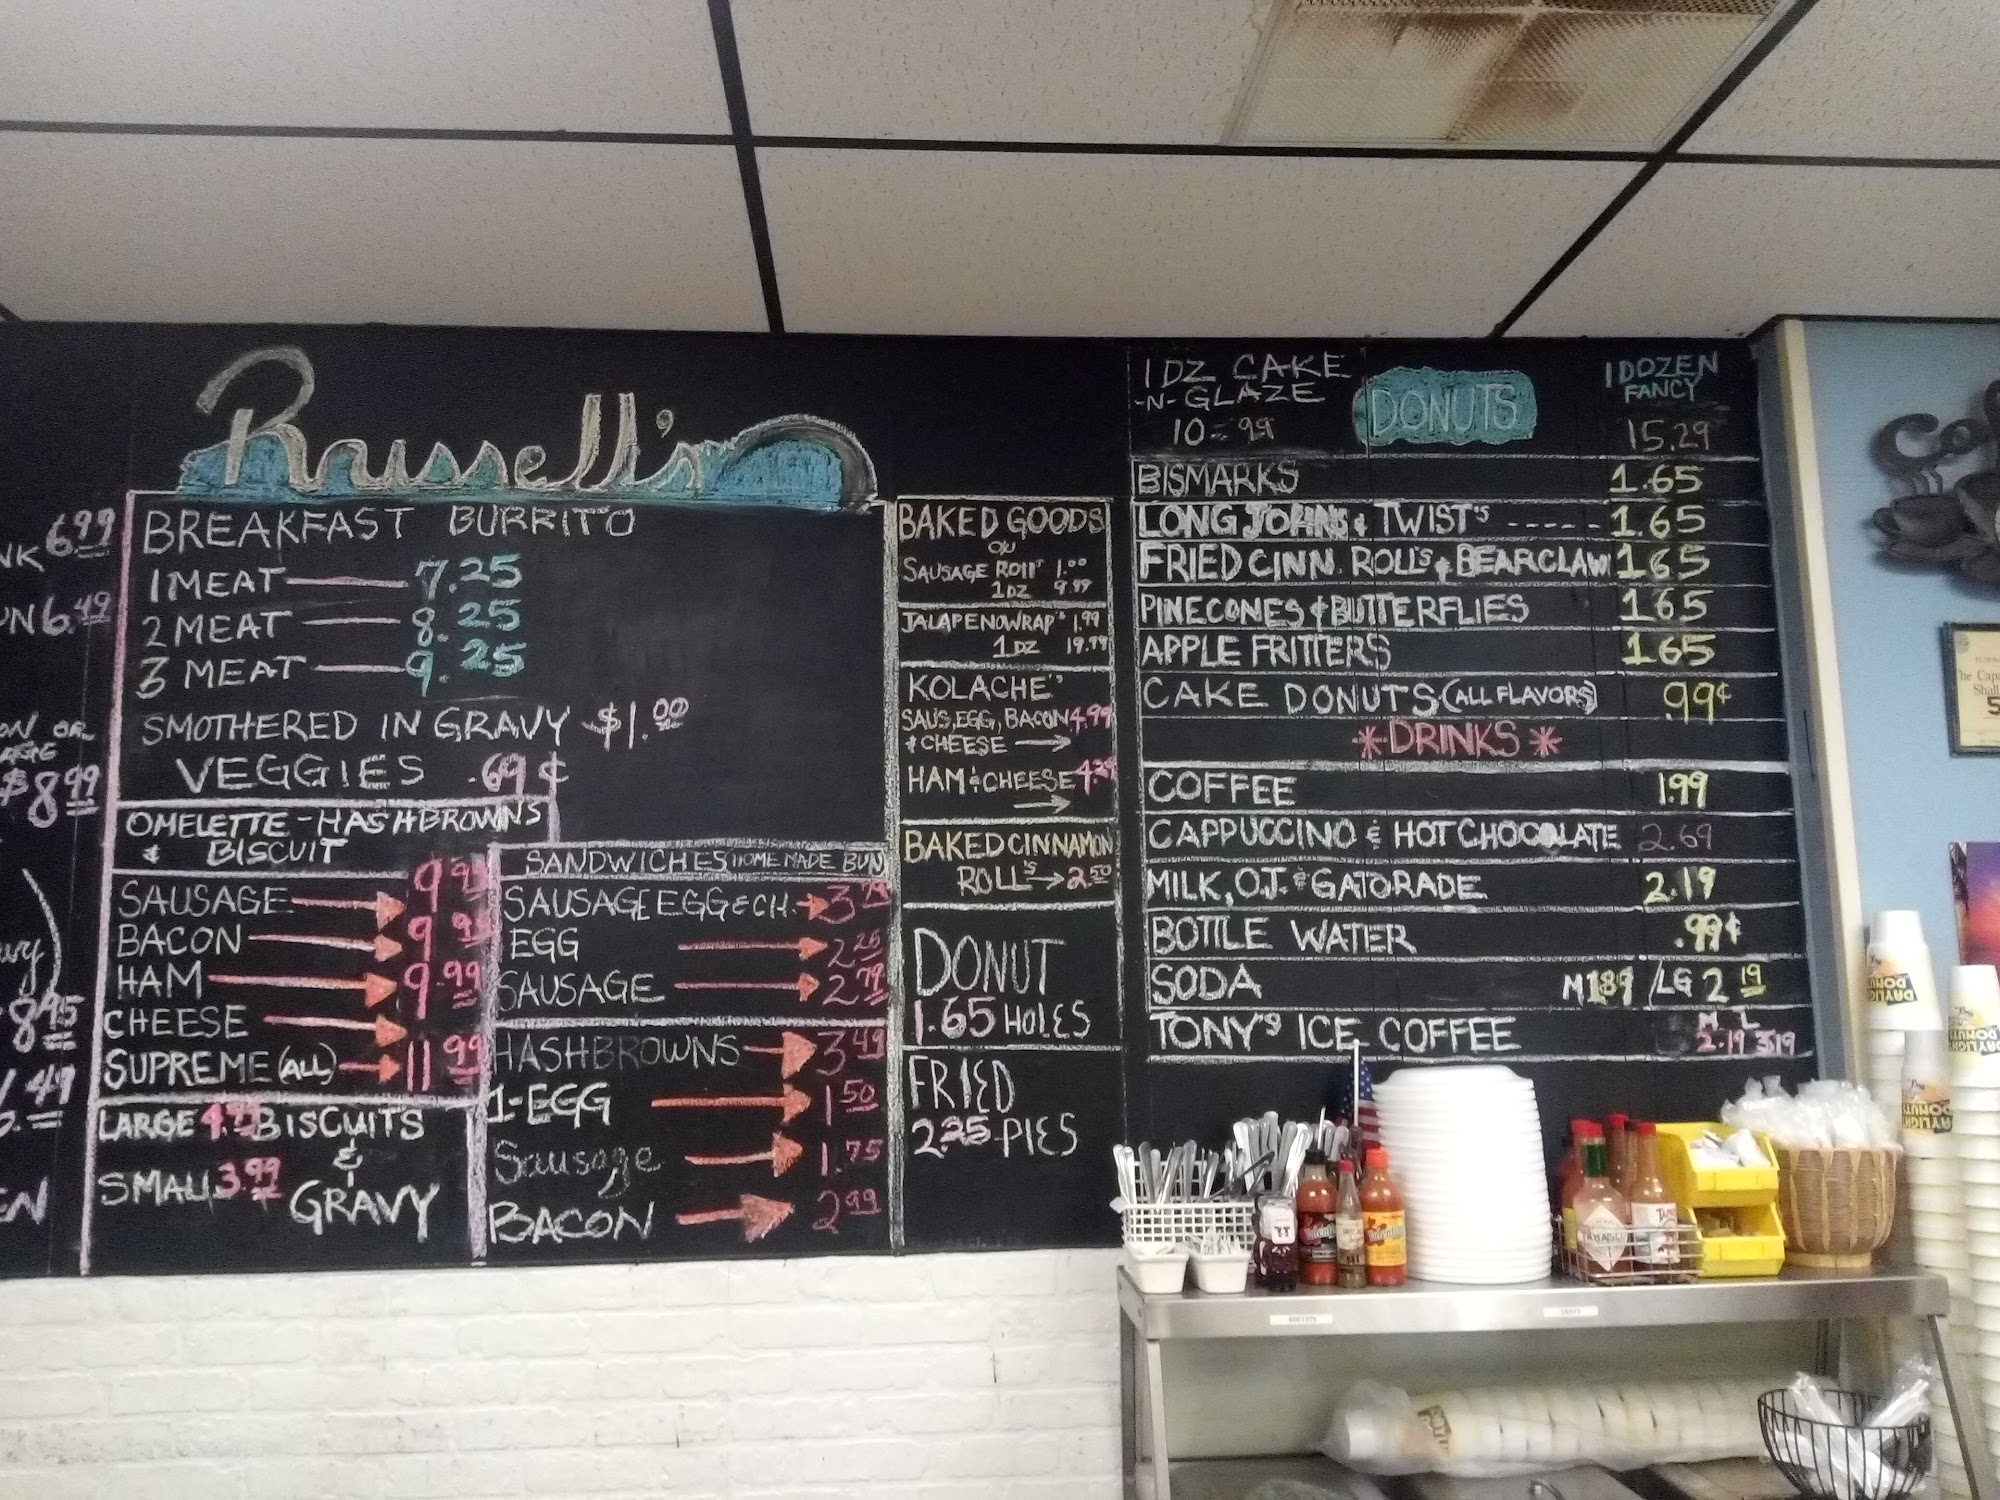 Russell's
6.99
6.49
ON OR
$8.99
8.95
BREAKFAST BURRITO
1 MEAT 7.25
2 MEAT 8.25
3 MEAT 9.25
SMOTHERED IN GRAVY $1.00
VEGGIES .69¢
OMELETTE - HASHBROWNS
& BISCUIT
SAUSAGE 9.99
BACON 9.99
HAM 9.99
CHEESE
SUPREME (ALL) 11.99
LARGE BISCUITS
&
SMALL 3.99
GRAVY
SANDWICHES HOME MADE BUN
SAUSAGE EGG & CH. 3.79
EGG 2.25
SAUSAGE 2.79
HASHBROWNS 3.49
1-EGG 1.50
Sausage 1.75
BACON 2.99
BAKED GOODS
SAUSAGE ROLL'S 1.00
1 DZ 9.99
JALAPENO WRAP'S 1.99
1 DZ 19.99
KOLACHE'S
SAUS, EGG, BACON 4.99
& CHEESE
HAM & CHEESE
BAKED CINNAMON
ROLL'S 2.50
DONUT
1.65 HOLES
FRIED
PIES
1 DZ CAKE
-N- GLAZE
10.99
DONUTS
1 DOZEN
FANCY
15.29
BISMARKS 1.65
LONG JOHNS & TWIST'S ----- 1.65
FRIED CINN. ROLL'S & BEARCLAW 1.65
PINECONES & BUTTERFLIES 1.65
APPLE FRITTERS 1.65
CAKE DONUTS (ALL FLAVORS) .99¢
*DRINKS*
COFFEE 1.99
CAPPUCCINO & HOT CHOCOLATE 2.69
MILK, O.J. & GATORADE 2.19
BOTTLE WATER .99¢
SODA M 1.89 / LG 2.19
TONY'S ICE COFFEE M 2.19 L 3.19
DAYLIGHT
DONUTS
TABASCO
Valentina